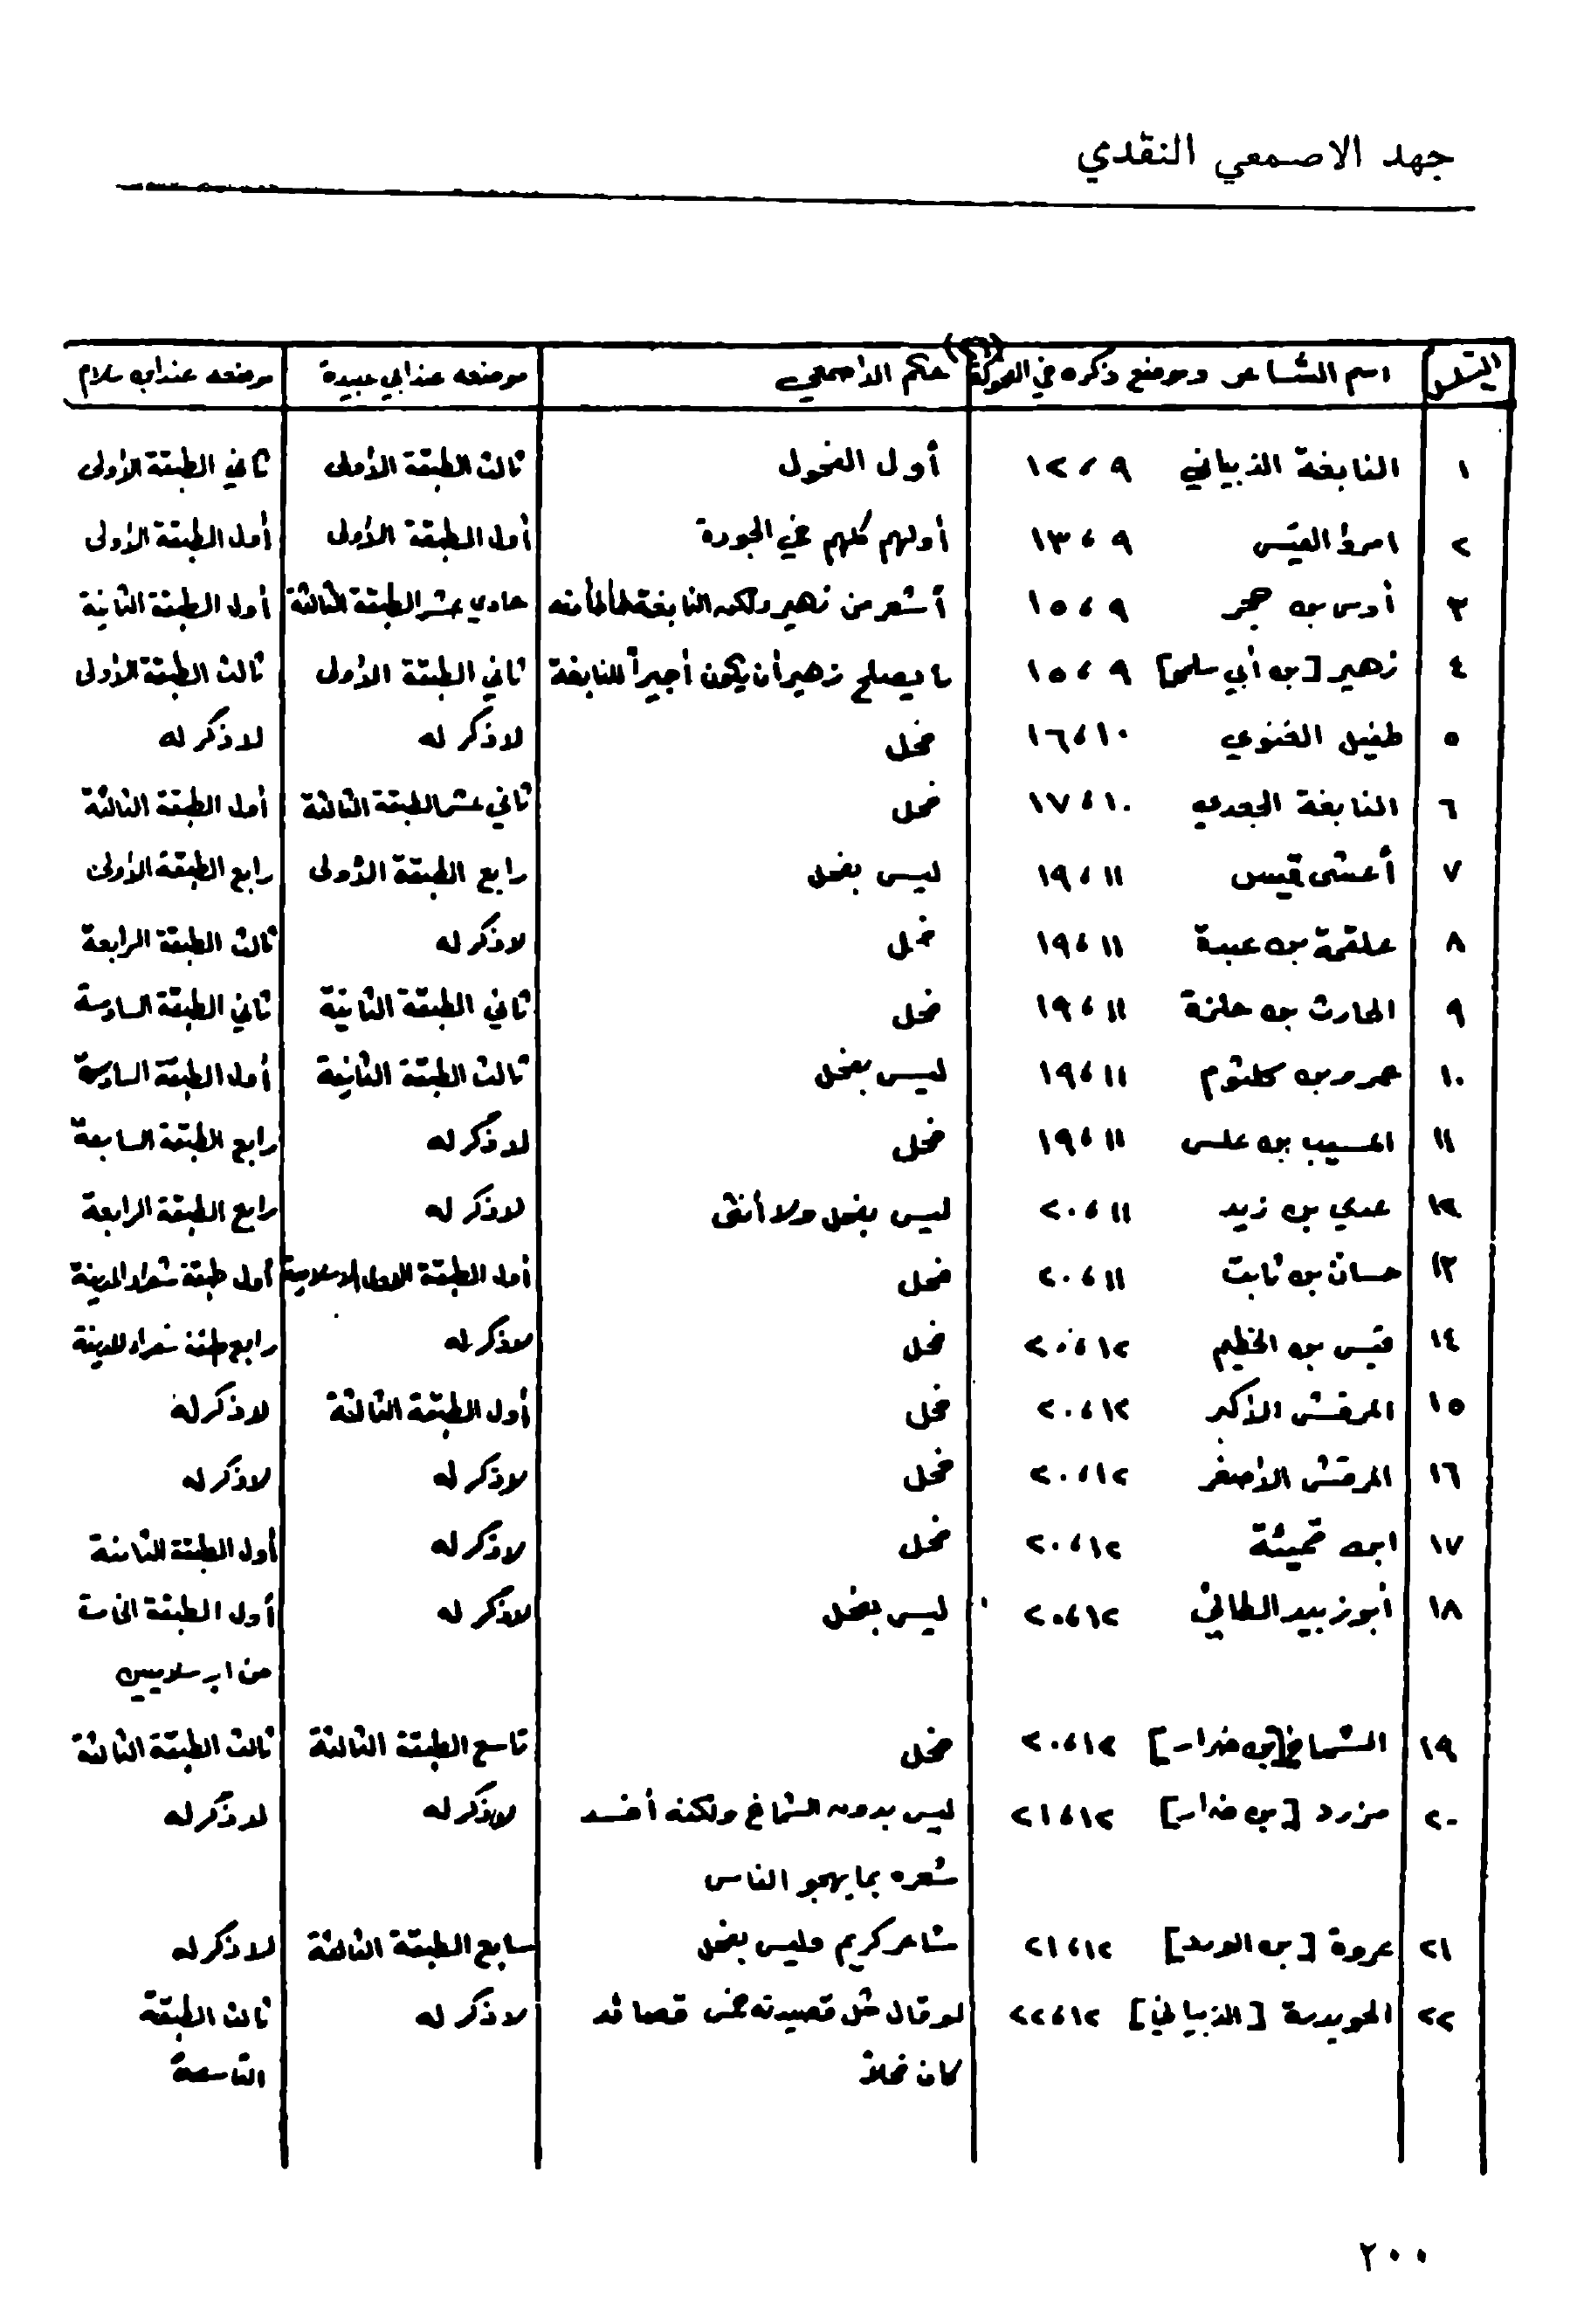 جهد الاصمعي النقدي
التسلسل | اسم الشاعر وموضع ذكره في الفحولة (٤٦) | حكم الأصمعي | موضعه عند أبي عبيدة | موضعه عند ابن سلام
١ | النابغة الذبياني ٩ ، ١٢ | أول الفحول | ثالث الطبقة الأولى | ثاني الطبقة الأولى
٢ | امرؤ القيس ٩ ، ١٣ | أولهم كلهم في الجودة | أول الطبقة الأولى | أول الطبقة الأولى
٣ | أوس بن حجر ٩ ، ١٥ | أشعر من زهير ولكن النابغة طأطأ منه | حادي عشر الطبقة الثالثة | أول الطبقة الثانية
٤ | زهير [بن أبي سلمى] ٩ ، ١٥ | ما يصلح زهير أن يكون أجيراً للنابغة | ثاني الطبقة الأولى | ثالث الطبقة الأولى
٥ | طفيل الغنوي ١٠ ، ١٦ | فحل | لا ذكر له | لا ذكر له
٦ | النابغة الجعدي ١٠ ، ١٧ | فحل | ثاني عشر الطبقة الثالثة | أول الطبقة الثالثة
٧ | أعشى قيس ١١ ، ١٩ | ليس بفحل | رابع الطبقة الأولى | رابع الطبقة الأولى
٨ | علقمة بن عبدة ١١ ، ١٩ | فحل | لا ذكر له | ثالث الطبقة الرابعة
٩ | الحارث بن حلزة ١١ ، ١٩ | فحل | ثاني الطبقة الثانية | ثاني الطبقة السادسة
١٠ | عمرو بن كلثوم ١١ ، ١٩ | ليس بفحل | ثالث الطبقة الثانية | أول الطبقة السادسة
١١ | المسيب بن علس ١١ ، ١٩ | فحل | لا ذكر له | رابع الطبقة السابعة
١٢ | عدي بن زيد ١١ ، ٢٠ | ليس بفحل ولا أنثى | لا ذكر له | رابع الطبقة الرابعة
١٣ | حسان بن ثابت ١١ ، ٢٠ | فحل | أول الطبقة الأولى الإسلامية | أول طبقة شعراء المدينة
١٤ | قيس بن الخطيم ١٢ ، ٢٠ | فحل | لا ذكر له | رابع طبقة شعراء المدينة
١٥ | المرقش الأكبر ١٢ ، ٢٠ | فحل | أول الطبقة الثالثة | لا ذكر له
١٦ | المرقش الأصغر ١٢ ، ٢٠ | فحل | لا ذكر له | لا ذكر له
١٧ | ابن قميئة ١٢ ، ٢٠ | فحل | لا ذكر له | أول الطبقة الثامنة
١٨ | أبو زبيد الطائي ١٢ ، ٢٠ | ليس بفحل | لا ذكر له | أول الطبقة الخامسة
من الإسلاميين
١٩ | الشماخ [بن ضرار] ١٢ ، ٢٠ | فحل | تاسع الطبقة الثالثة | ثالث الطبقة الثالثة
٢٠ | مزرد [بن ضرار] ١٢ ، ٢١ | ليس بدون الشماخ ولكنه أفسد | لا ذكر له | لا ذكر له
شعره بما يهجو الناس
٢١ | عروة [بن الورد] ١٢ ، ٢١ | شاعر كريم وليس بفحل | سابع الطبقة الثالثة | لا ذكر له
٢٢ | الحويدرة [الذبياني] ١٢ ، ٢٢ | لو قال مثل قصيدته خمس قصائد | لا ذكر له | ثالث الطبقة
كان فحلاً | التاسعة
٢٠٠